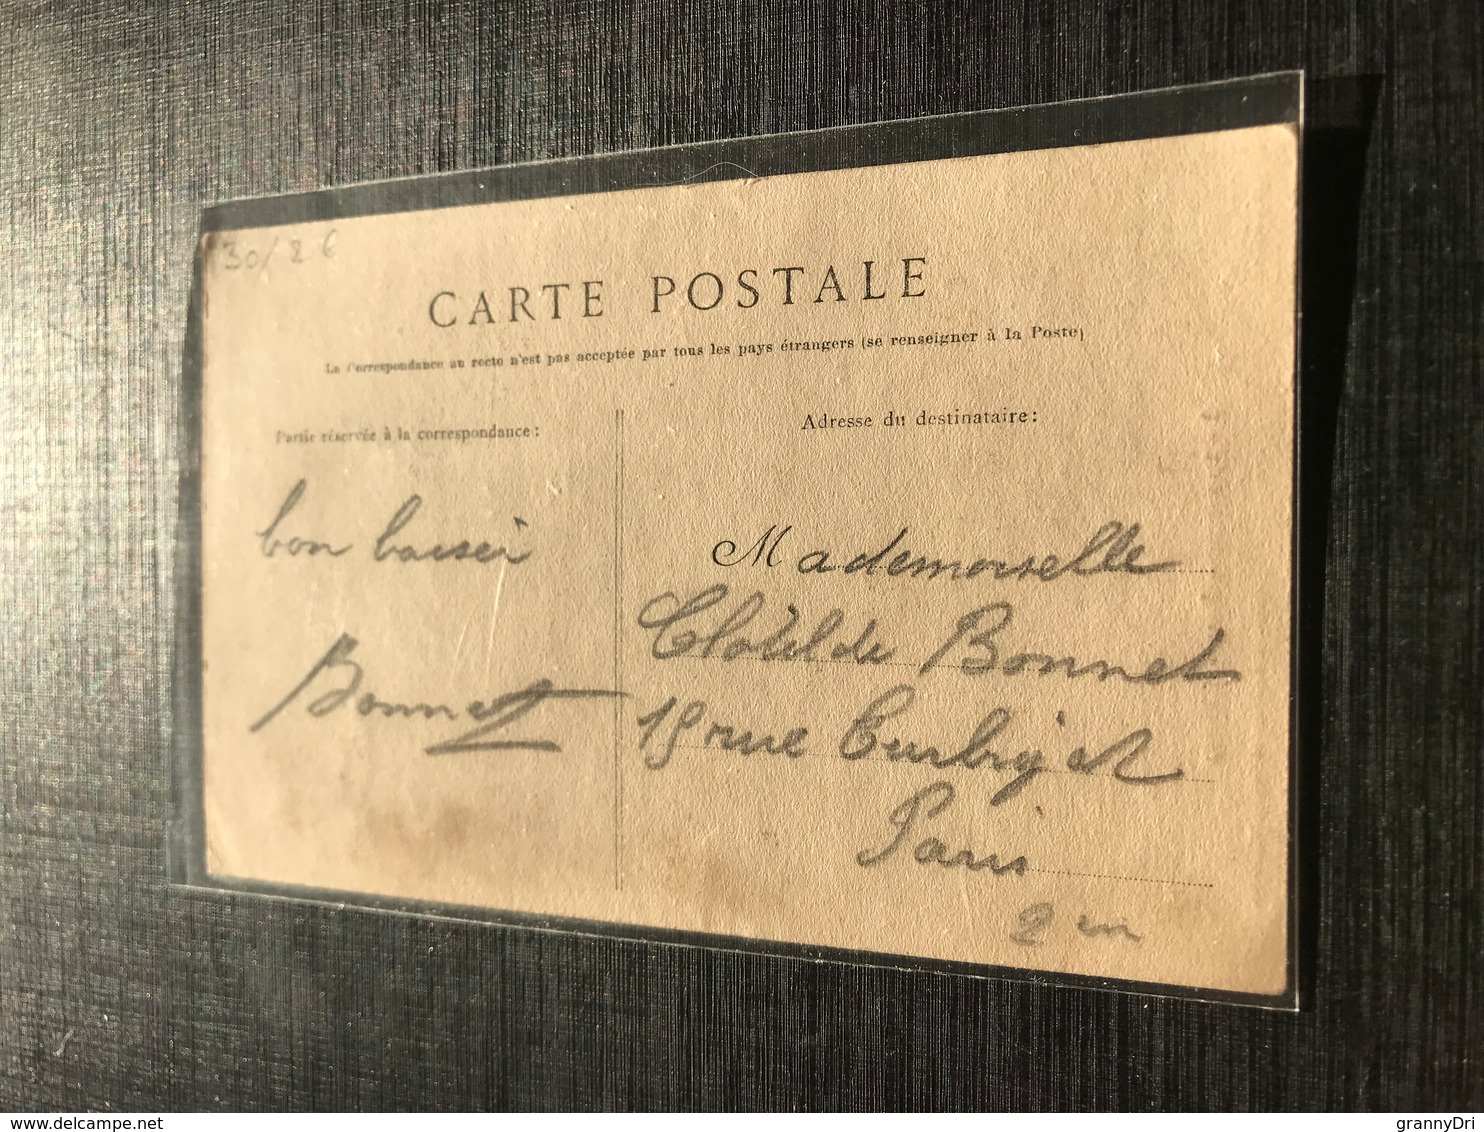 30/2 €
CARTE POSTALE
La Correspondance au recto n'est pas acceptée par tous les pays étrangers (se renseigner à la Poste)
Partie réservée à la correspondance:
Adresse du destinataire:
bon baiser
Bonnet
Mademoiselle
Clotilde Bonnet
rue Turbigot
Paris
2 em
www.delcampe.net
grannyDri